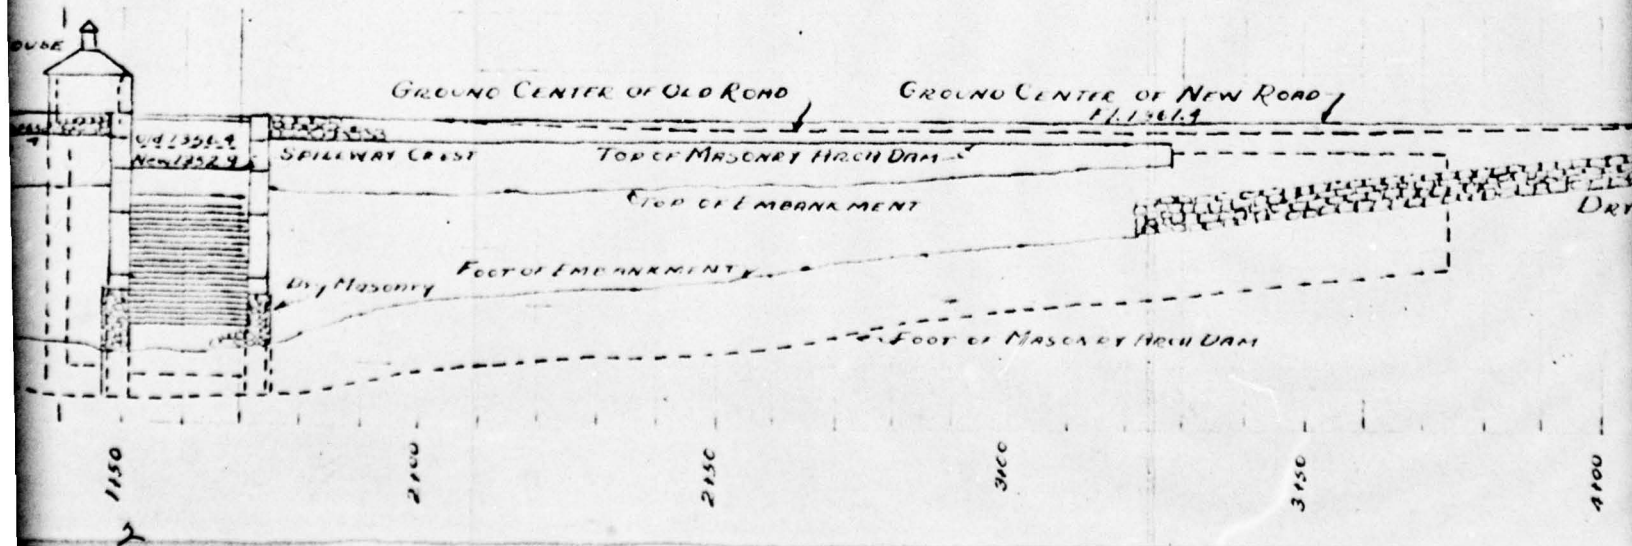 GROUND CENTER OF OLD ROAD
GROUND CENTER OF NEW ROAD
El. 1361.4
Old 1351.4
New 1352.9
SPILLWAY CREST
TOP OF MASONRY ARCH DAM
TOP OF EMBANKMENT
DRY
FOOT OF EMBANKMENT
Dry Masonry
FOOT OF MASONRY ARCH DAM
1+50
2+00
2+50
3+00
3+50
4+00
2